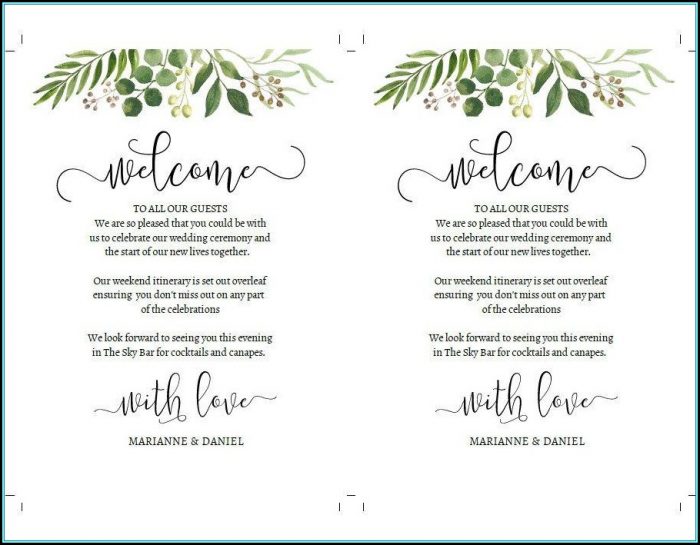 welcome
TO ALL OUR GUESTS
We are so pleased that you could be with
us to celebrate our wedding ceremony and
the start of our new lives together.
Our weekend itinerary is set out overleaf
ensuring you don't miss out on any part
of the celebrations
We look forward to seeing you this evening
in The Sky Bar for cocktails and canapes.
with love
MARIANNE & DANIEL
welcome
TO ALL OUR GUESTS
We are so pleased that you could be with
us to celebrate our wedding ceremony and
the start of our new lives together.
Our weekend itinerary is set out overleaf
ensuring you don't miss out on any part
of the celebrations
We look forward to seeing you this evening
in The Sky Bar for cocktails and canapes.
with love
MARIANNE & DANIEL